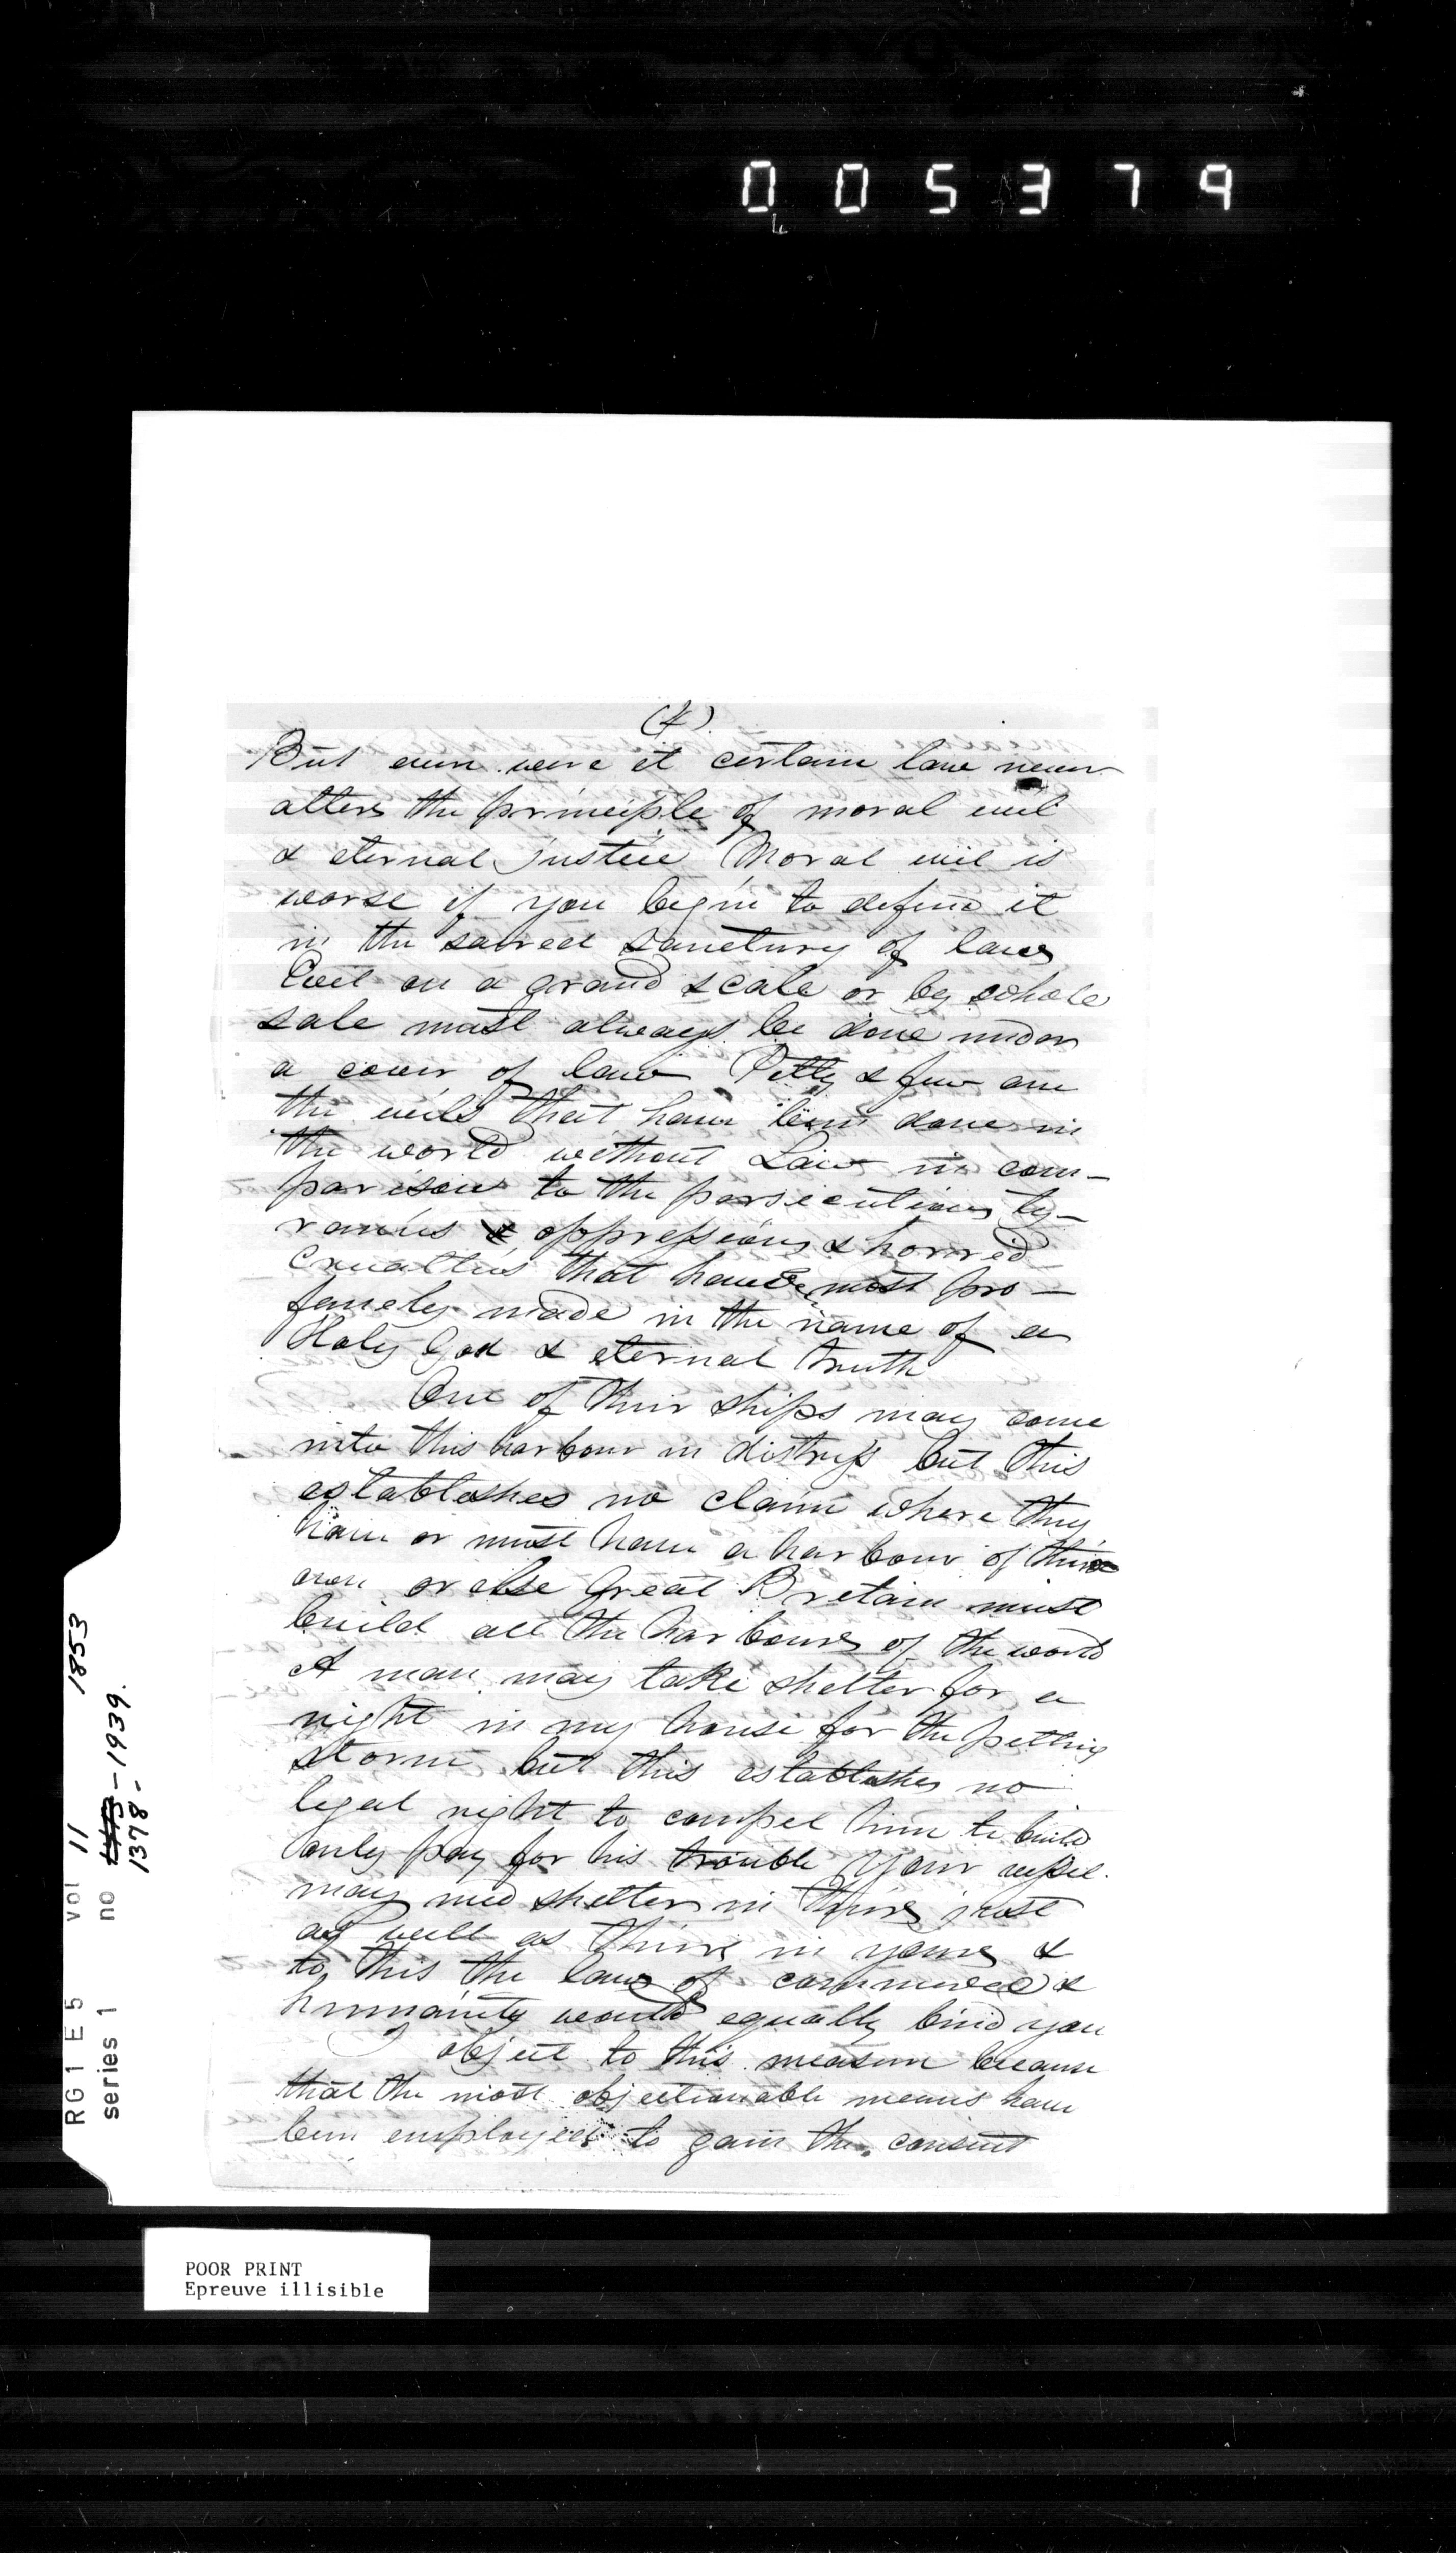 005379
(4).
But even were it certain law never
alters the principle of moral evil
& eternal justice Moral evil is
worse if you begin to defend it
in the sacred sanctury of laws
Evil on a grand scale or by whole
sale must always be done under
a cover of law Petty & few are
the evils that have been done in
the world without Law in com-
parison to the persecutions ty-
ranies & oppressions & horrid
cruelties that have most pro-
fanely made in the name of a
Holy God & eternal truth
One of their ships may come
into this harbour in distress but this
establashes no claim where they
have or must have a harbour of their
own or else Great Britain must
build all the harbours of the world
A man may take shelter for a
night in my house for the petting
storm but this establashes no
legal right to compel him to build
only pay for his trouble your vessel
may need shelter in theirs just
as well as theirs in yours &
to this the laws of commerce &
humanity would equally bind you
I object to this measure because
that the most objectionable means have
been employed to gain the consent
RG1 E5 vol 11 1853
series 1 no 1378-1939.
POOR PRINT
Epreuve illisible